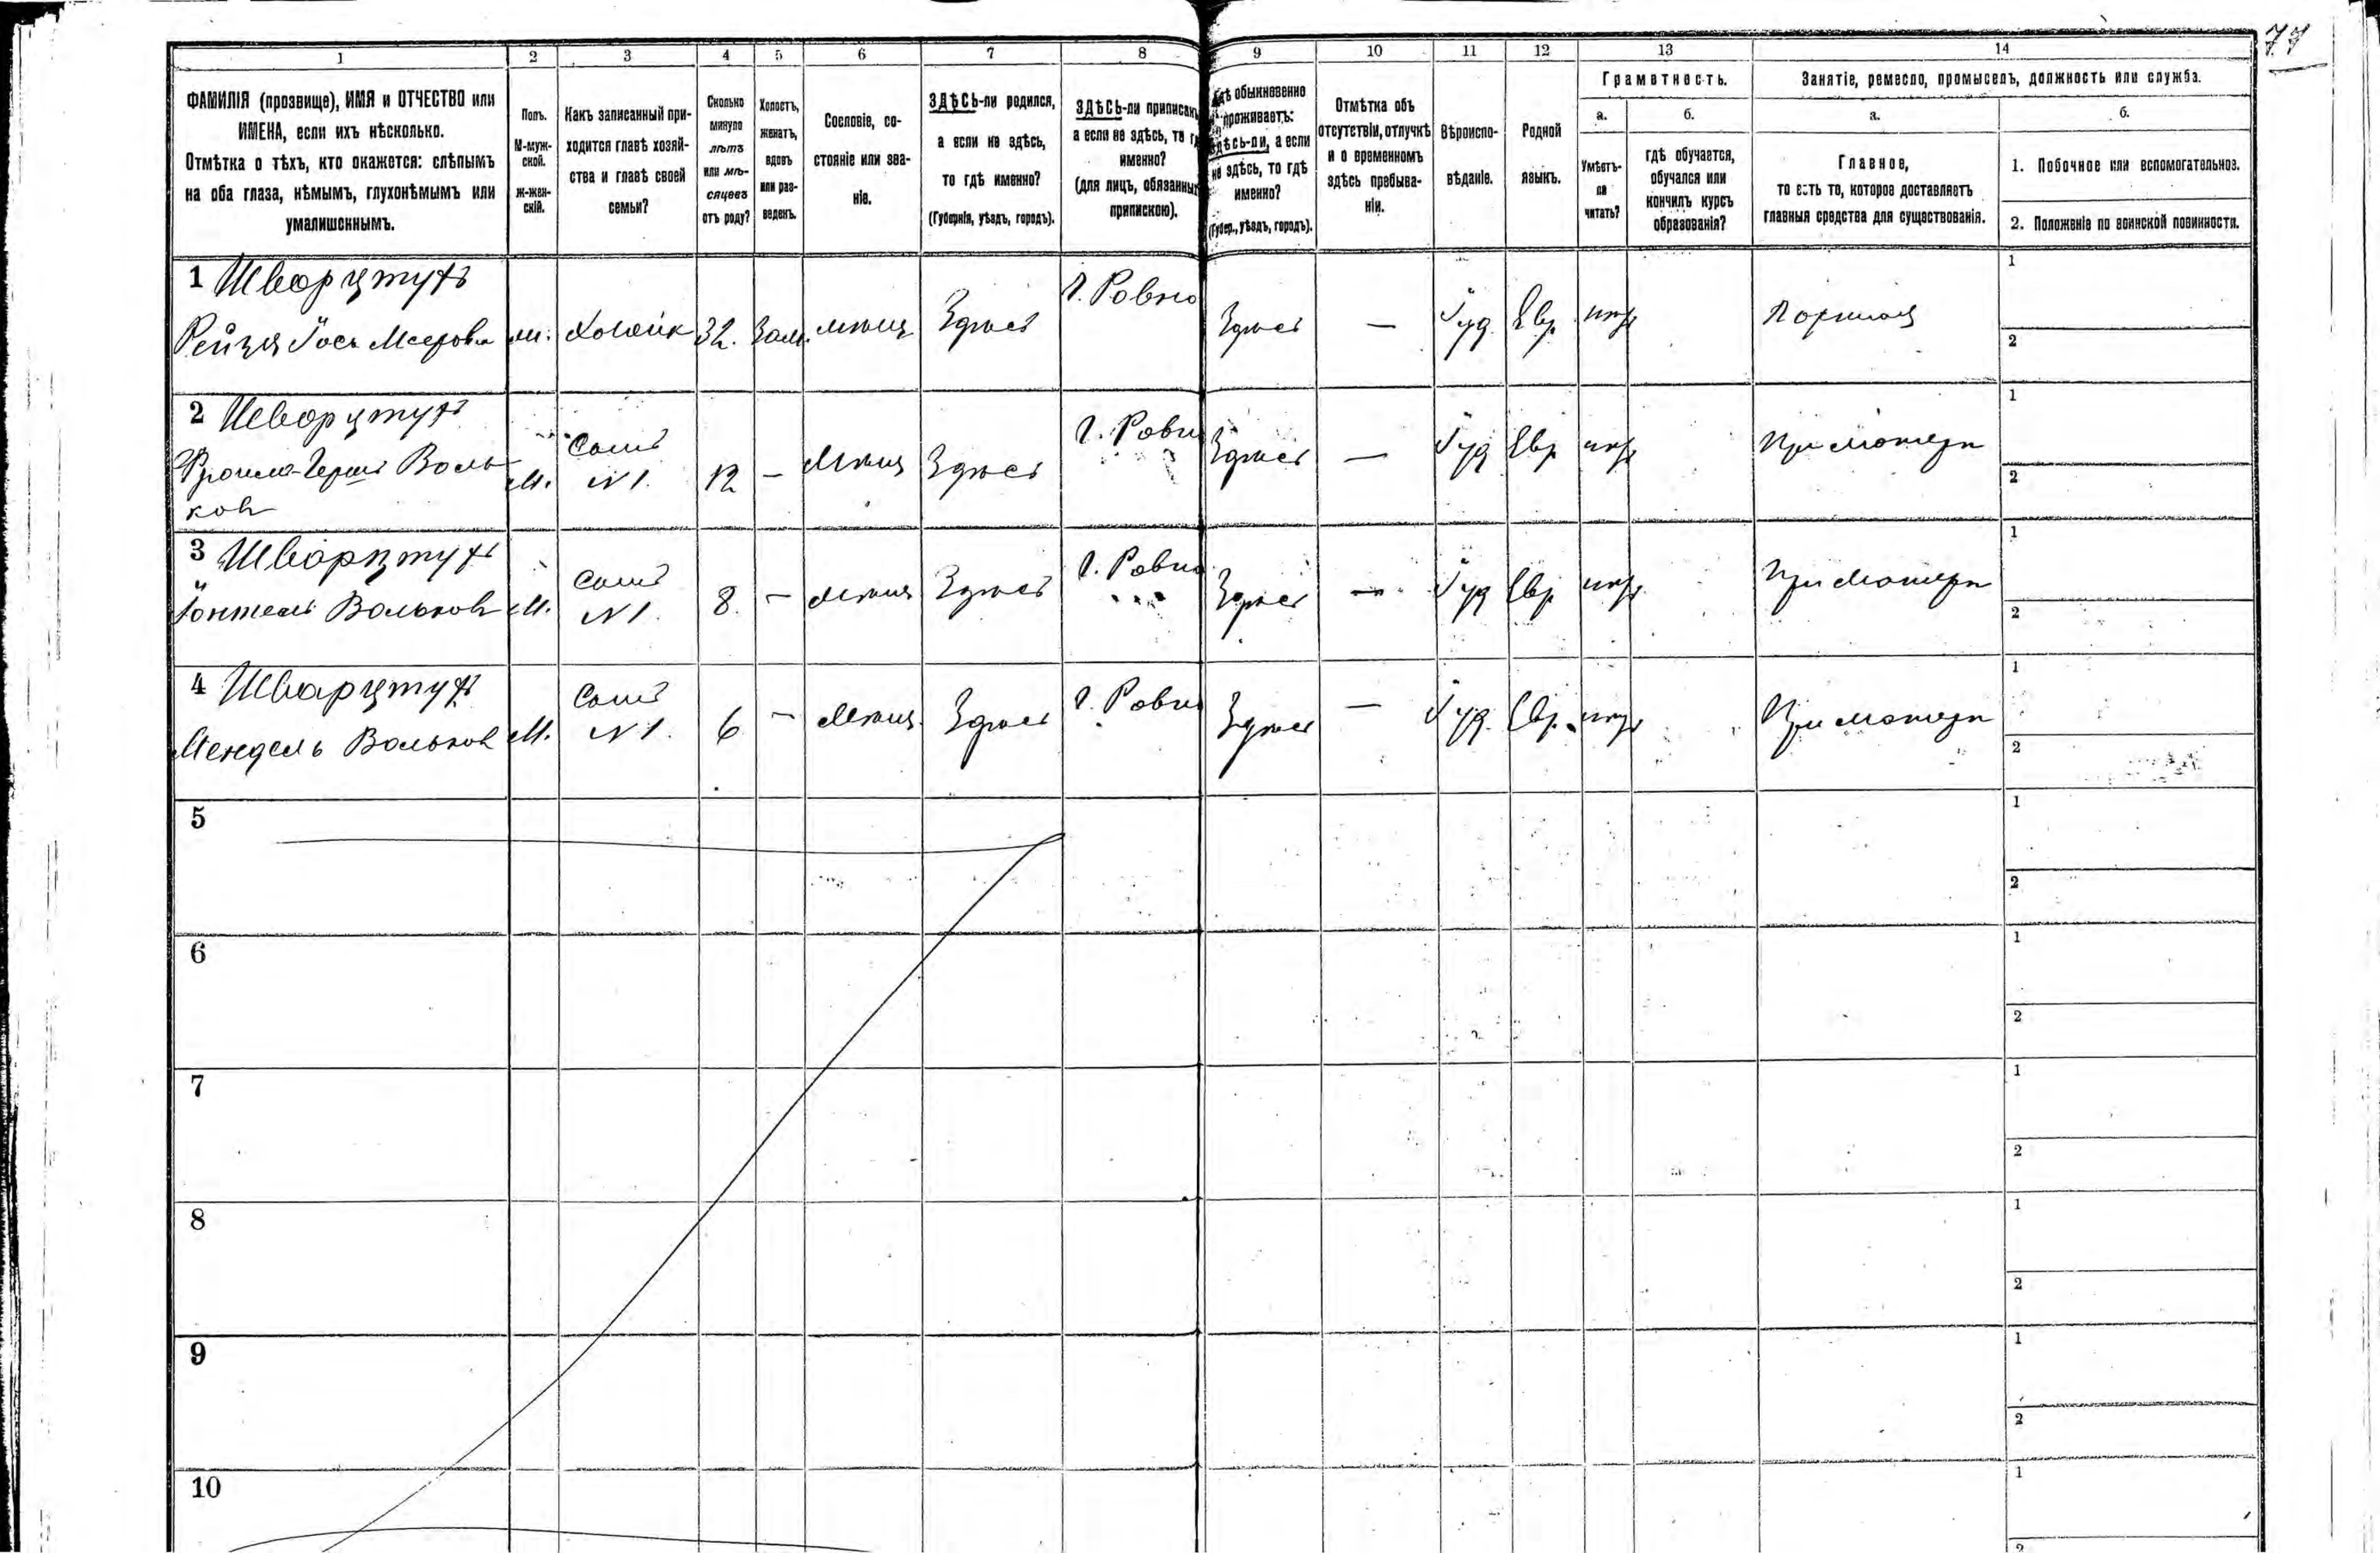 77
1 2 3 4 5 6 7 8 9 10 11 12 13 14
ФАМИЛІЯ (прозвище), ИМЯ и ОТЧЕСТВО или
ИМЕНА, если ихъ нѣсколько.
Отмѣтка о тѣхъ, кто окажется: слѣпымъ
на оба глаза, нѣмымъ, глухонѣмымъ или
умалишеннымъ.
Полъ.
М-муж-
ской.
ж-жен-
скій.
Какъ записанный при-
ходится главѣ хозяй-
ства и главѣ своей
семьи?
Сколько
минуло
лѣтъ
или мѣ-
сяцевъ
отъ роду?
Холостъ,
женатъ,
вдовъ
или раз-
веденъ.
Сословіе, со-
стояніе или зва-
ніе.
ЗДѢСЬ-ли родился,
а если не здѣсь,
то гдѣ именно?
(Губернія, уѣздъ, городъ).
ЗДѢСЬ-ли приписанъ
а если не здѣсь, то
именно?
(для лицъ, обязанных
припискою).
обыкновенно
проживаетъ:
здѣсь-ли, а если
не здѣсь, то гдѣ
именно?
(Губер., уѣздъ, городъ).
Отмѣтка объ
отсутствіи, отлучкѣ
и о временномъ
здѣсь пребыва-
ніи.
Вѣроиспо-
вѣданіе.
Родной
языкъ.
Грамотность.
а.
Умѣетъ-
ли
читать?
б.
гдѣ обучается,
обучался или
кончилъ курсъ
образованія?
Занятіе, ремесло, промыселъ, должность или служба.
а.
Главное,
то есть то, которое доставляетъ
главныя средства для существованія.
б.
1. Побочное или вспомогательное.
2. Положеніе по воинской повинности.
1 Шварцтухъ
Рейзя Іось Меерова
32. Зам. мѣщ Здѣсь г. Ровно Здѣсь — Іуд. Евр. нѣтъ
1
2
2 Шварцтухъ
Герш Воль-
ков
М. Сынъ
N 1. 12 — Мѣщ Здѣсь г. Ровно Здѣсь — Іуд Евр нѣтъ При матери
1
2
3 Шварцтухъ
Вольков М. Сынъ
N 1. 8. — Мѣщ Здѣсь г. Ровно Здѣсь — Іуд Евр нѣтъ При матери
1
2
4 Шварцтухъ
Мендель Вольков М. Сынъ
N 1. 6 — Мѣщ. Здѣсь г. Ровно Здѣсь — Іуд. Евр. нѣтъ При матери
1
2
5
1
2
6
1
2
7
1
2
8
1
2
9
1
2
10
1
2